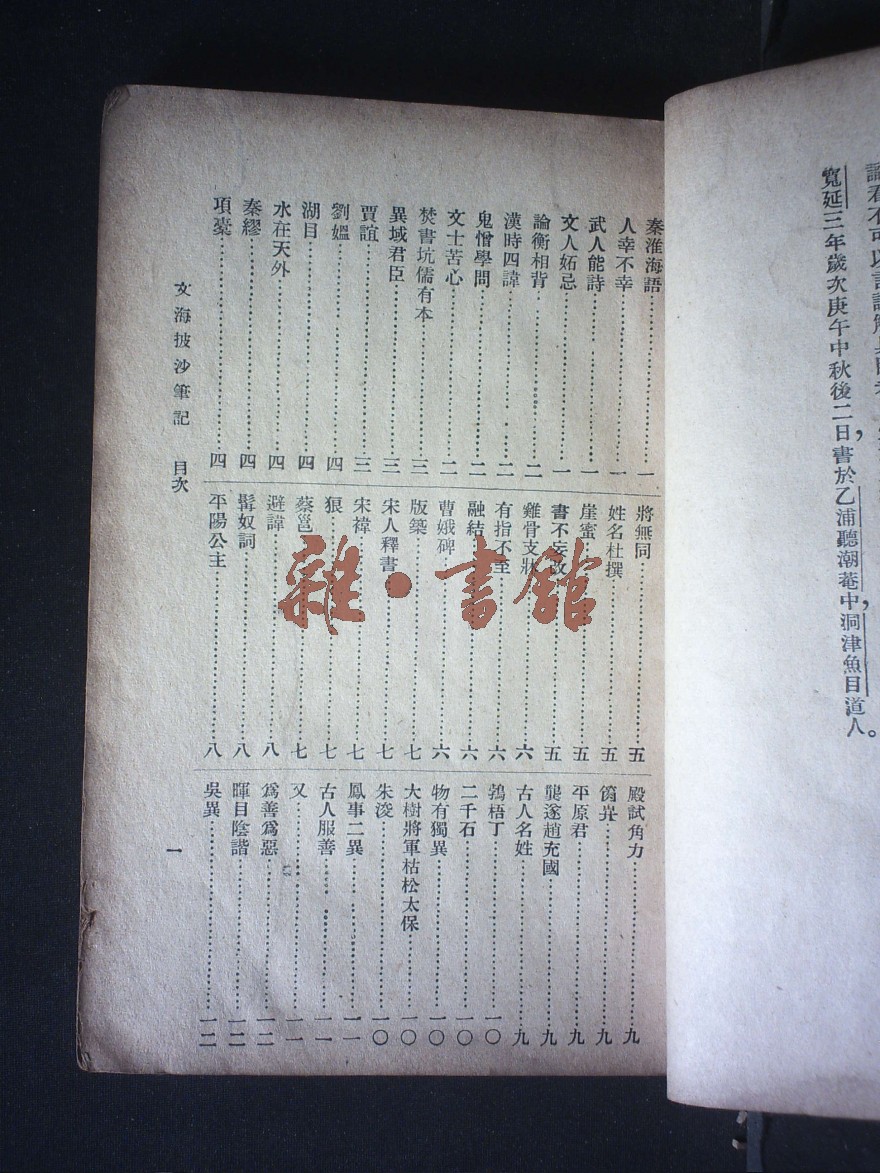 寬延三年歲次庚午中秋後二日，書於乙浦聽潮菴中，洞津魚目道人。
秦淮海語……一
人幸不幸……一
武人能詩……一
文人妬忌……一
論衡相背……二
漢時四諱……二
鬼憎學問……二
文士苦心……二
焚書坑儒有本……三
異域君臣……三
賈誼……三
劉媼……四
湖目……四
水在天外……四
秦繆……四
項橐……四
將無同……五
姓名杜撰……五
崖蜜……五
書不妄改……五
雞骨支牀……六
有指不至……六
融結……六
曹娥碑……六
版築……七
宋人釋書……七
宋褘……七
狠……七
蔡邕……七
避諱……八
髯奴詞……八
平陽公主……八
殿試角力……九
九
平原君……九
龔遂趙充國……九
古人名姓……九
鵓梧丁……一〇
二千石……一〇
物有獨異……一〇
大樹將軍枯松太保……一〇
朱浚……一〇
鳳事二異……一一
古人服善……一一
又……一一
爲善爲惡……一二
暉目陰諧……一二
吳異……一二
文海披沙筆記 目次
一
雜·書館